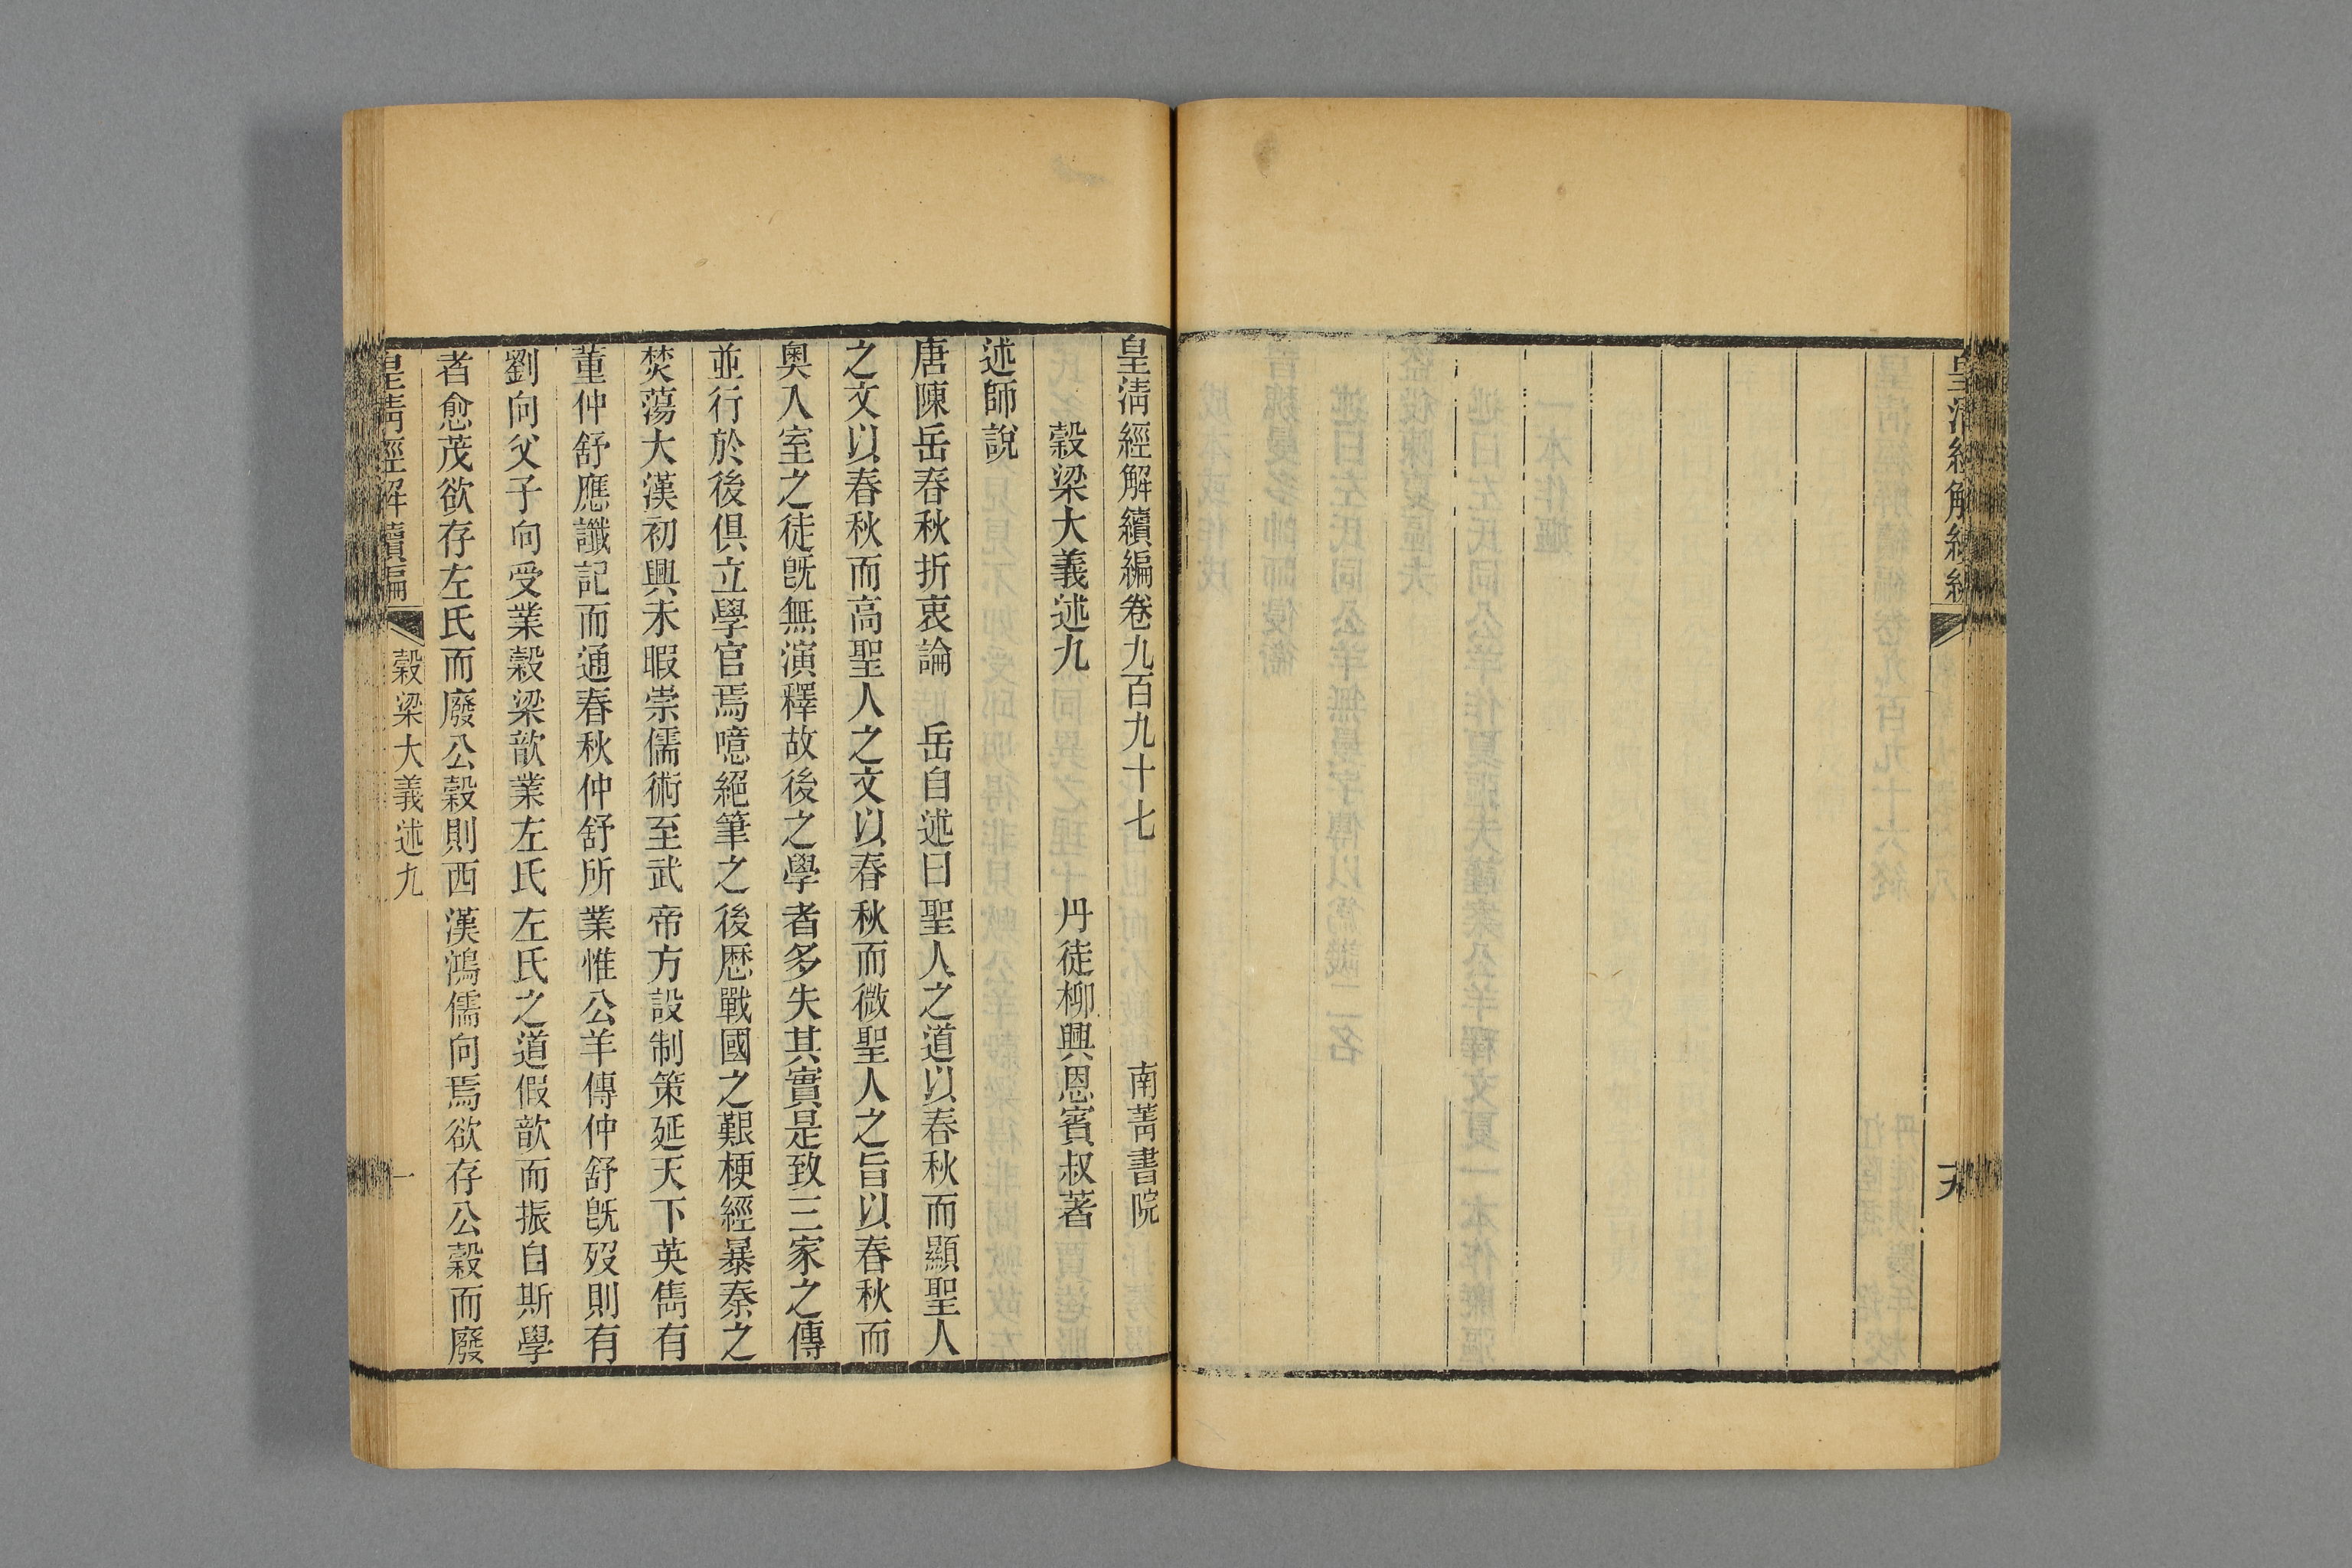 皇清經解續編卷九百九十七　南菁書院
穀梁大義述九　丹徒柳興恩賓叔著
述師說
唐陳岳春秋折衷論　岳自述曰聖人之道以春秋而顯聖人
之文以春秋而高聖人之文以春秋而微聖人之旨以春秋而
奧入室之徒旣無演釋故後之學者多失其實是致三家之傳
並行於後俱立學官焉噫絕筆之後歴戰國之艱梗經暴秦之
焚蕩大漢初興未暇崇儒術至武帝方設制策延天下英雋有
董仲舒應讖記而通春秋仲舒所業惟公羊傳仲舒旣歿則有
劉向父子向受業穀梁歆業左氏左氏之道假歆而振自斯學
者愈茂欲存左氏而廢公穀則西漢鴻儒向焉欲存公穀而廢
皇清經解續編　穀梁大義述九　一